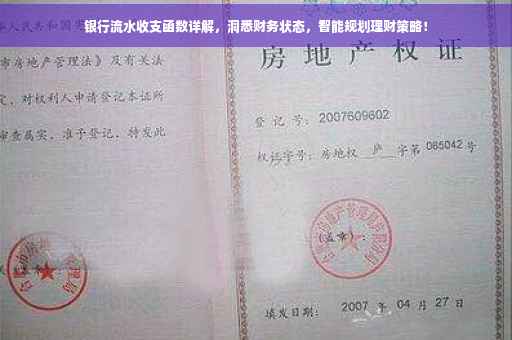 银行流水收支函数详解，洞悉财务状态，智能规划理财策略！
华人民共和国宪
市房地产管理法》及有关法
定，对权利人申请登记本证所
审查属实，准予登记，特发此
房地产权证
登 记 号：2007609602
权证字号：房地权 庐 字第 065042 号
(盖章)：
填发日期： 2007 年 04 月 27 日